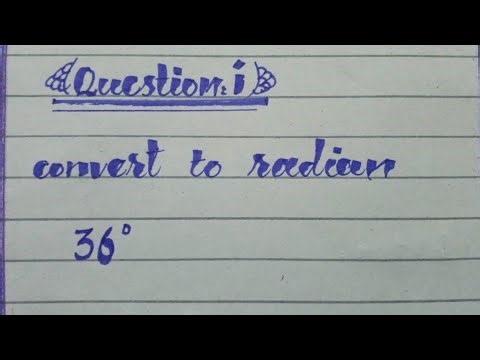 Question: i
convert to radian
36°